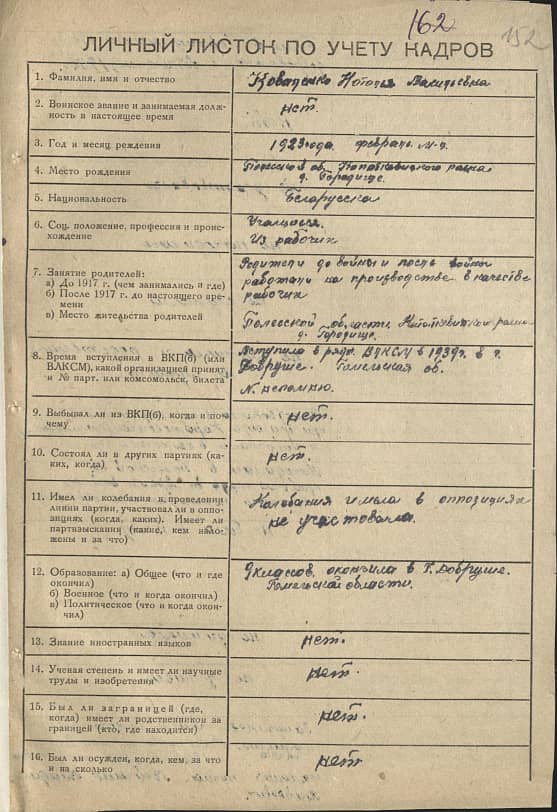 162
152
ЛИЧНЫЙ ЛИСТОК ПО УЧЕТУ КАДРОВ
1. Фамилия, имя и отчество
Коваленко Наталья
2. Воинское звание и занимаемая долж-
ность в настоящее время
нет.
3. Год и месяц рождения
1923 года февраль м-ц.
4. Место рождения
Полесской об. района
д. Городище.
5. Национальность
Белорусска
6. Соц. положение, профессия и проис-
хождение
Учащаяся.
Из рабочих
7. Занятие родителей:
а) До 1917 г. (чем занимались и где)
б) После 1917 г. до настоящего вре-
мени
в) Место жительства родителей
Родители до войны и после войны
работали на производстве в качестве
рабочих
Полесской области района
д. Городище.
8. Время вступления в ВКП(б) (или
ВЛКСМ), какой организацией принят
и № парт. или комсомольск. билета
Вступила в ряды ВЛКСМ в 1939г. в г.
Добруше. Гомельская об.
N. непомню.
9. Выбывал ли из ВКП(б), когда и по-
чему
нет.
10. Состоял ли в других партиях (ка-
ких, когда)
нет.
11. Имел ли колебания в проведении
линии партии, участвовал ли в оппо-
зициях (когда, каких). Имеет ли
партвзыскания (какие, кем нало-
жены и за что)
Колебания имела в оппозициях
не участовала.
12. Образование: а) Общее (что и где
окончил)
б) Военное (что и когда окончил)
в) Политическое (что и когда окон-
чил)
9 классов окончила в г. Добруше.
Гомельской области.
13. Знание иностранных языков
нет.
14. Ученая степень и имеет ли научные
труды и изобретения
нет.
15. Был ли заграницей (где,
когда) имеет ли родственников за
границей (кто, где находится)
нет.
16. Был ли осужден, когда, кем, за что
и на сколько
нет